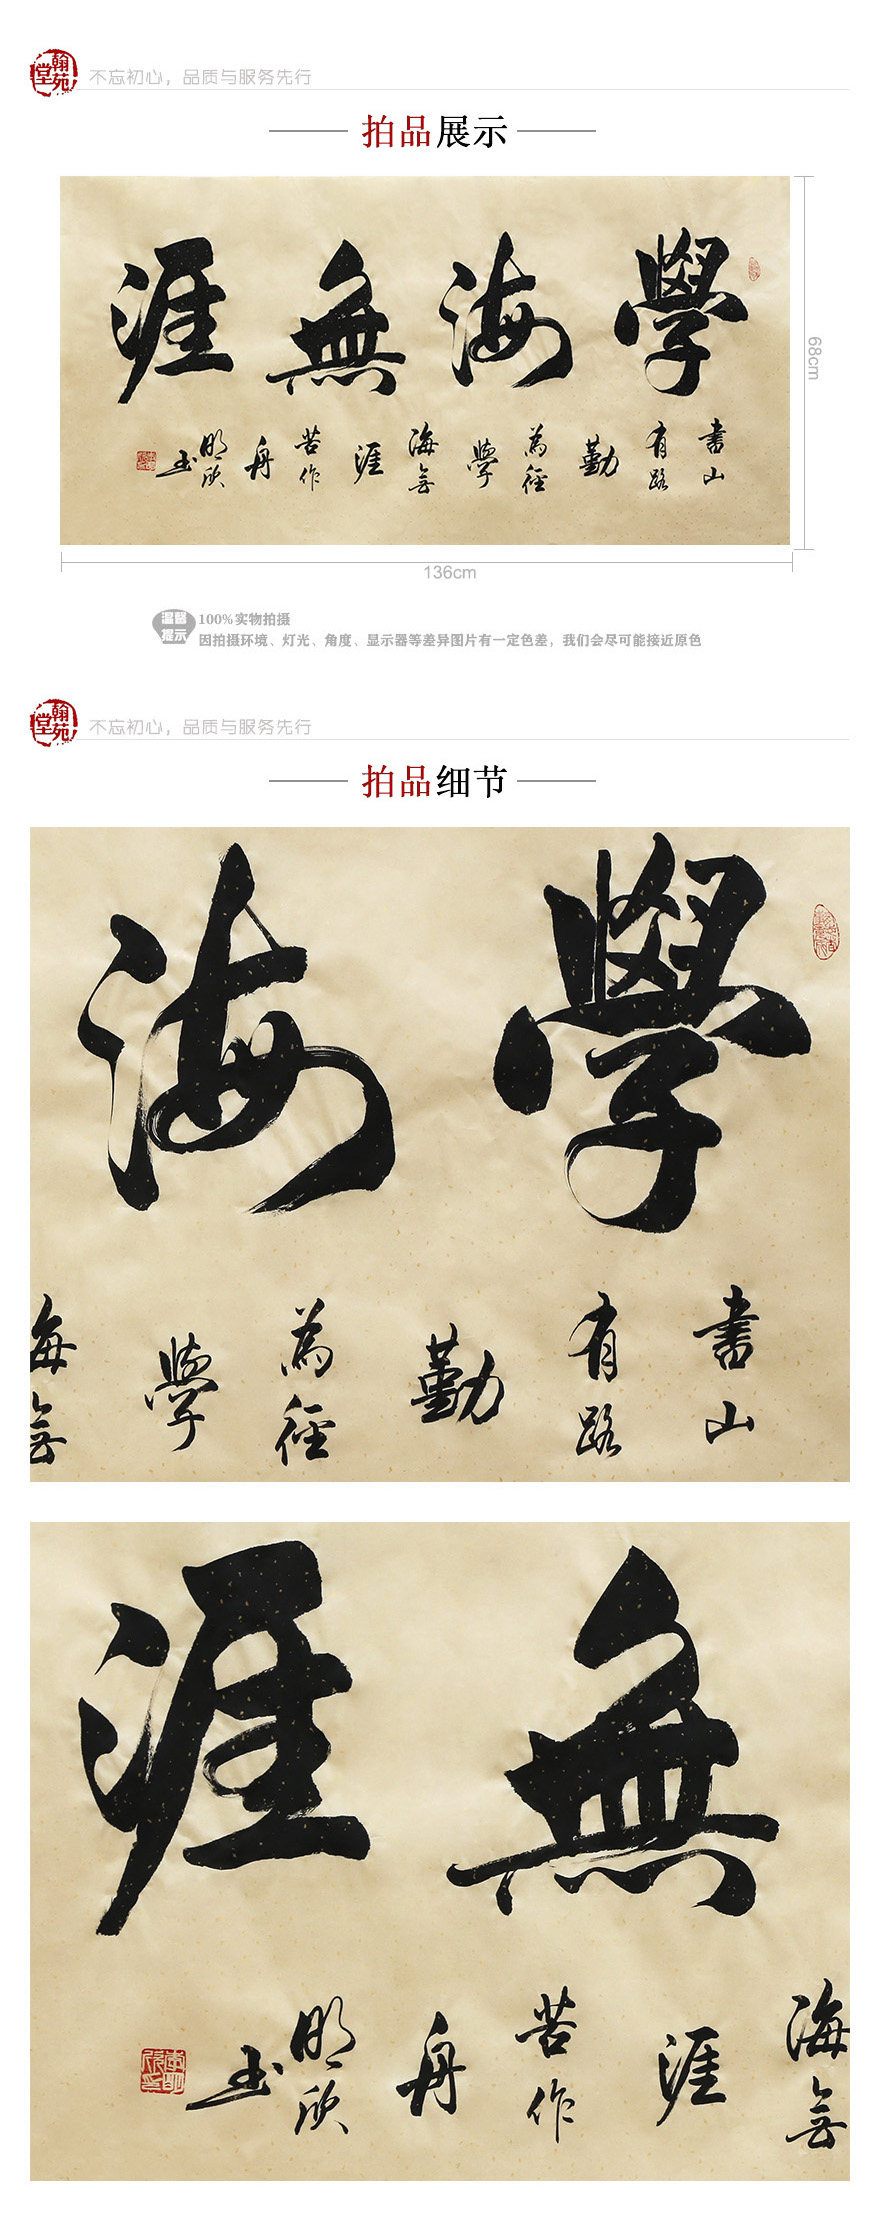 翰苑堂
不忘初心，品质与服务先行
拍品展示
學海無涯
書山有路勤為徑學海無涯苦作舟
明欣书
68cm
136cm
温馨提示
100%实物拍摄
因拍摄环境、灯光、角度、显示器等差异图片有一定色差，我们会尽可能接近原色
翰苑堂
不忘初心，品质与服务先行
拍品细节
學海
書山有路勤為徑學海無
無涯
海無涯苦作舟
明欣书